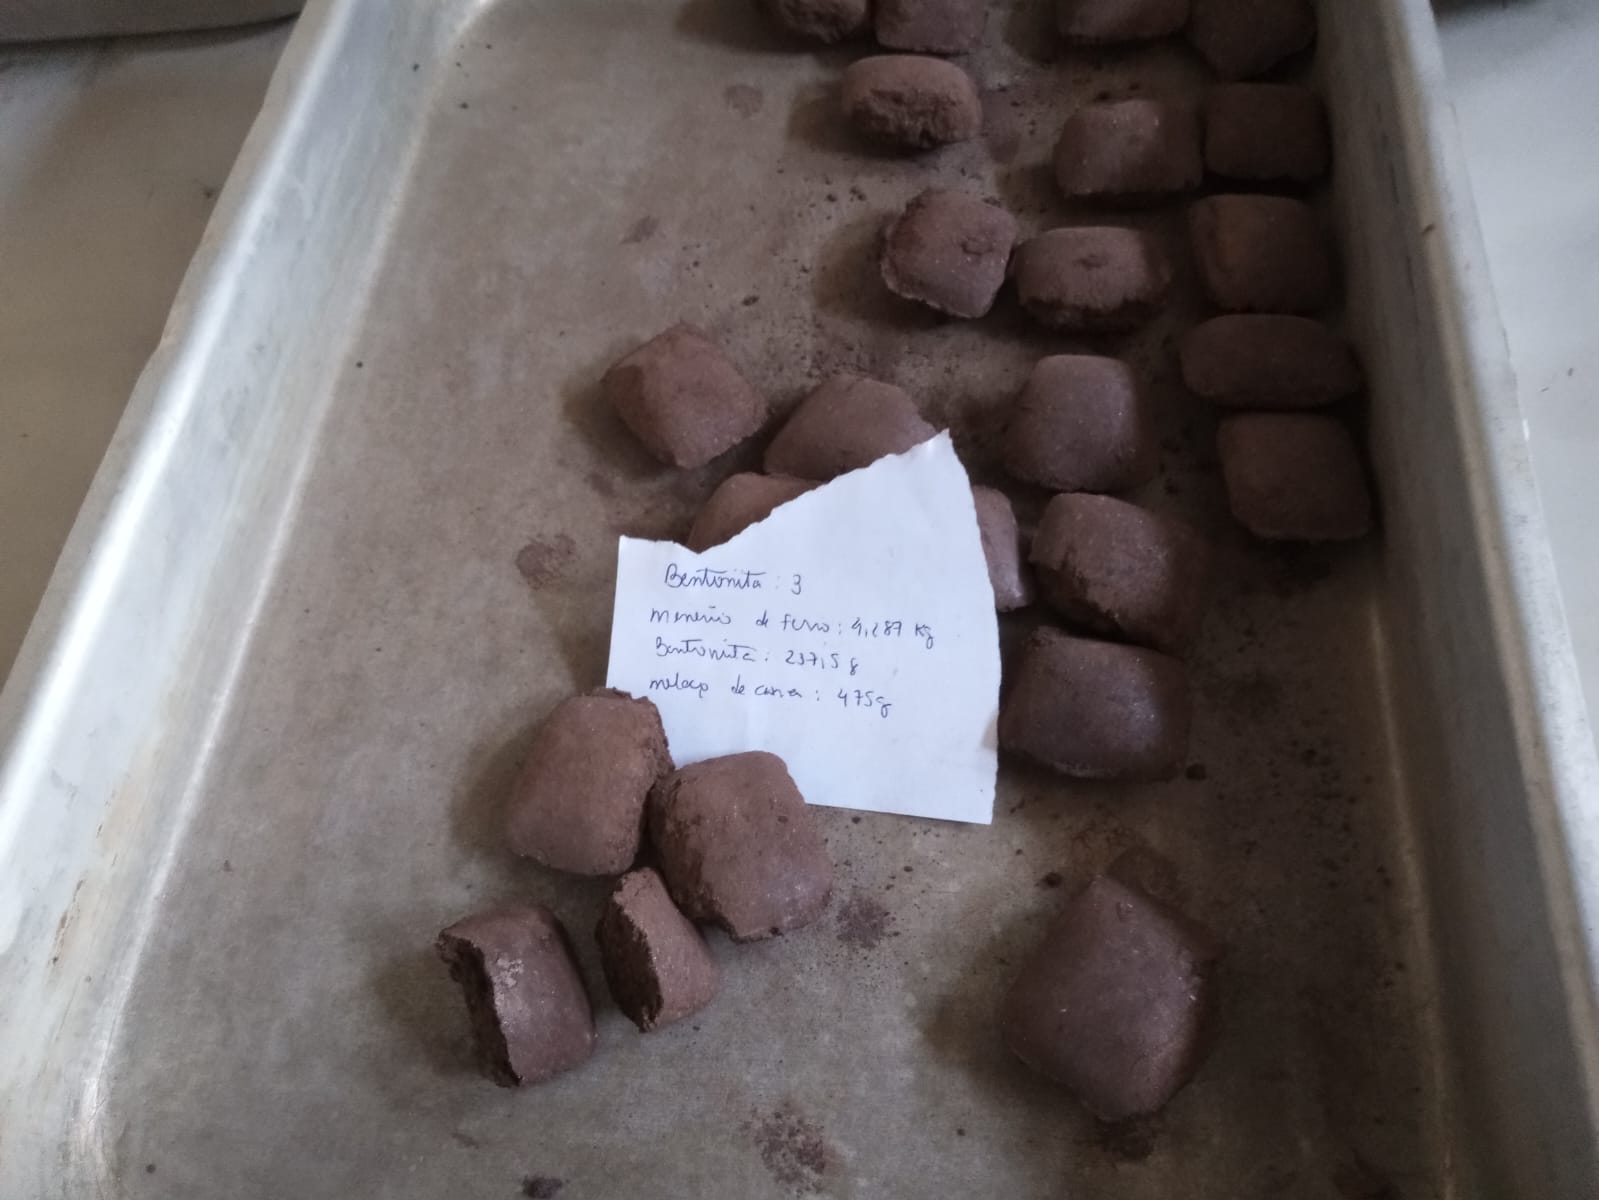 Bentonita : 3
minério de ferro : 4,287 Kg
Bentonita : 237,5 g
melaço de cana : 475g